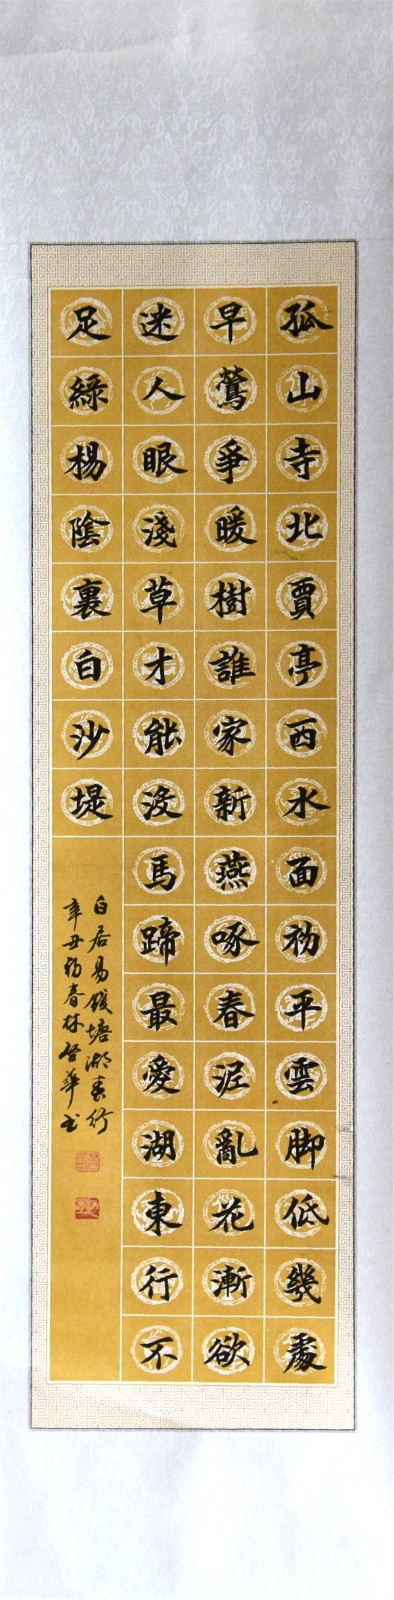 孤山寺北賈亭西水面初平雲脚低幾處
早鶯爭暖樹誰家新燕啄春泥亂花漸欲
迷人眼淺草才能沒馬蹄最愛湖東行不
足綠楊陰裏白沙堤
白居易錢塘湖春行
辛丑初春林
華书